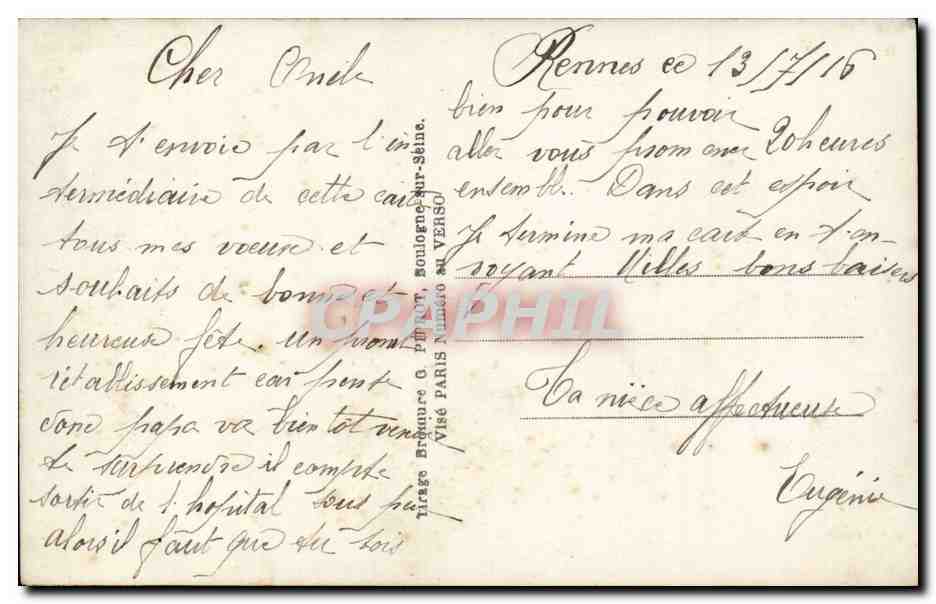 Cher Oncle
Je t'envoie par l'in
termédiaire de cette carte
tous mes voeux et
souhaits de bonne et
heureuse fête. un promt
rétablissement car
donc papa va bientot venir
te surprendre il compte
sortir de l'hopital sous peu
alors il faut que tu sois
Rennes ce 13/7/16
bien pour pouvoir
aller vous promener 20heures
ensemble. Dans cet espoir
Je termine ma cart en t'en-
voyant Milles bons baisers
Ta nièce affectueuse
Eugénie
Tirage Bromure G. PIPROT, Boulogne-sur-Seine.
Visé PARIS Numéro au VERSO
CPAPHIL